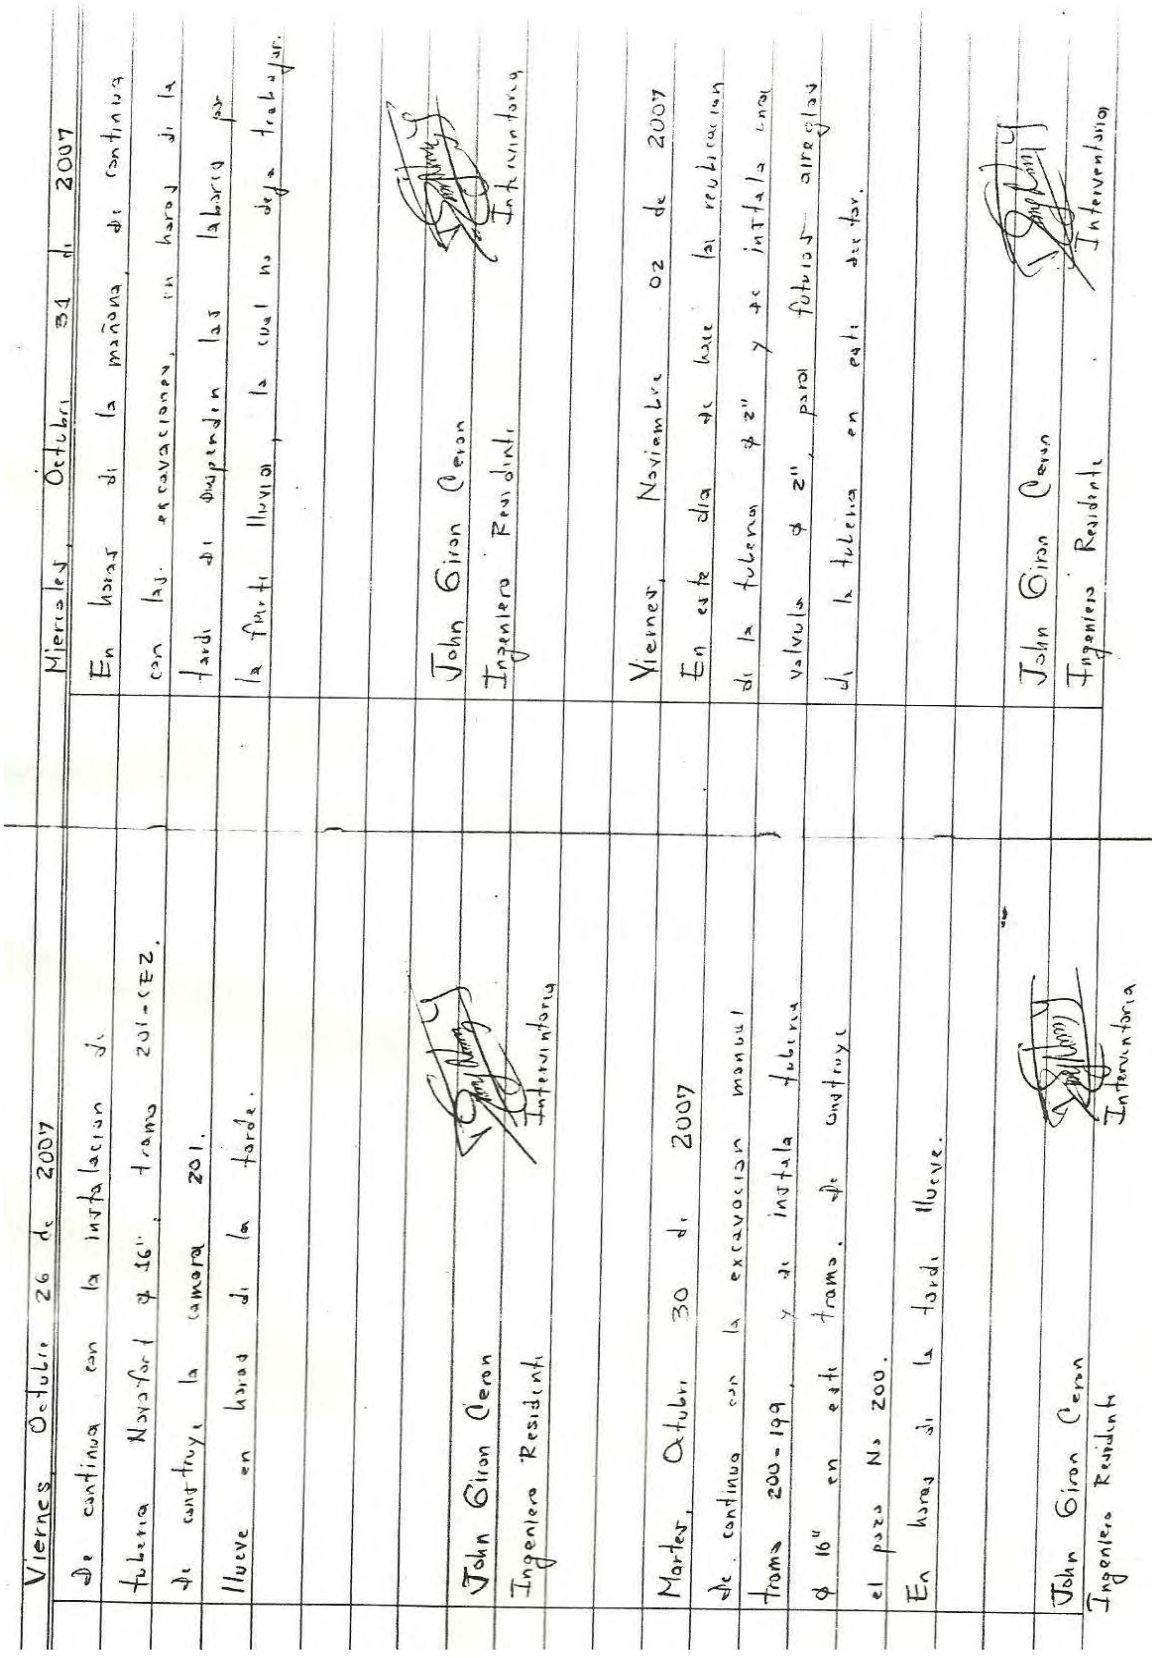 Viernes, Octubre 26 de 2007
Se continua con la instalacion de
tuberia Novafort ϕ 16", tramo 201-CE2.
Se construye la camara 201.
llueve en horas de la tarde.
John Giron Ceron
Ingeniero Residente
Interventoria
Martes, Octubre 30 de 2007
Se continua con la excavacion manual
tramo 200-199, y se instala tuberia
ϕ 16" en este tramo. Se construye
el pozo No 200.
En horas de la tarde llueve.
John Giron Ceron
Ingeniero Residente
Interventoria
Miercoles, Octubre 31 de 2007
En horas de la mañana, se continua
con las excavaciones, en horas de la
tarde se suspenden las labores por
la fuerte lluvia, la cual no deja trabajar.
John Giron Ceron
Ingeniero Residente
Interventoria
Viernes, Noviembre 02 de 2007
En este dia se hace la reubicacion
de la tuberia ϕ 2" y se instala una
valvula ϕ 2", para futuros arreglos
de la tuberia en este sector.
John Giron Ceron
Ingeniero Residente
Interventoria